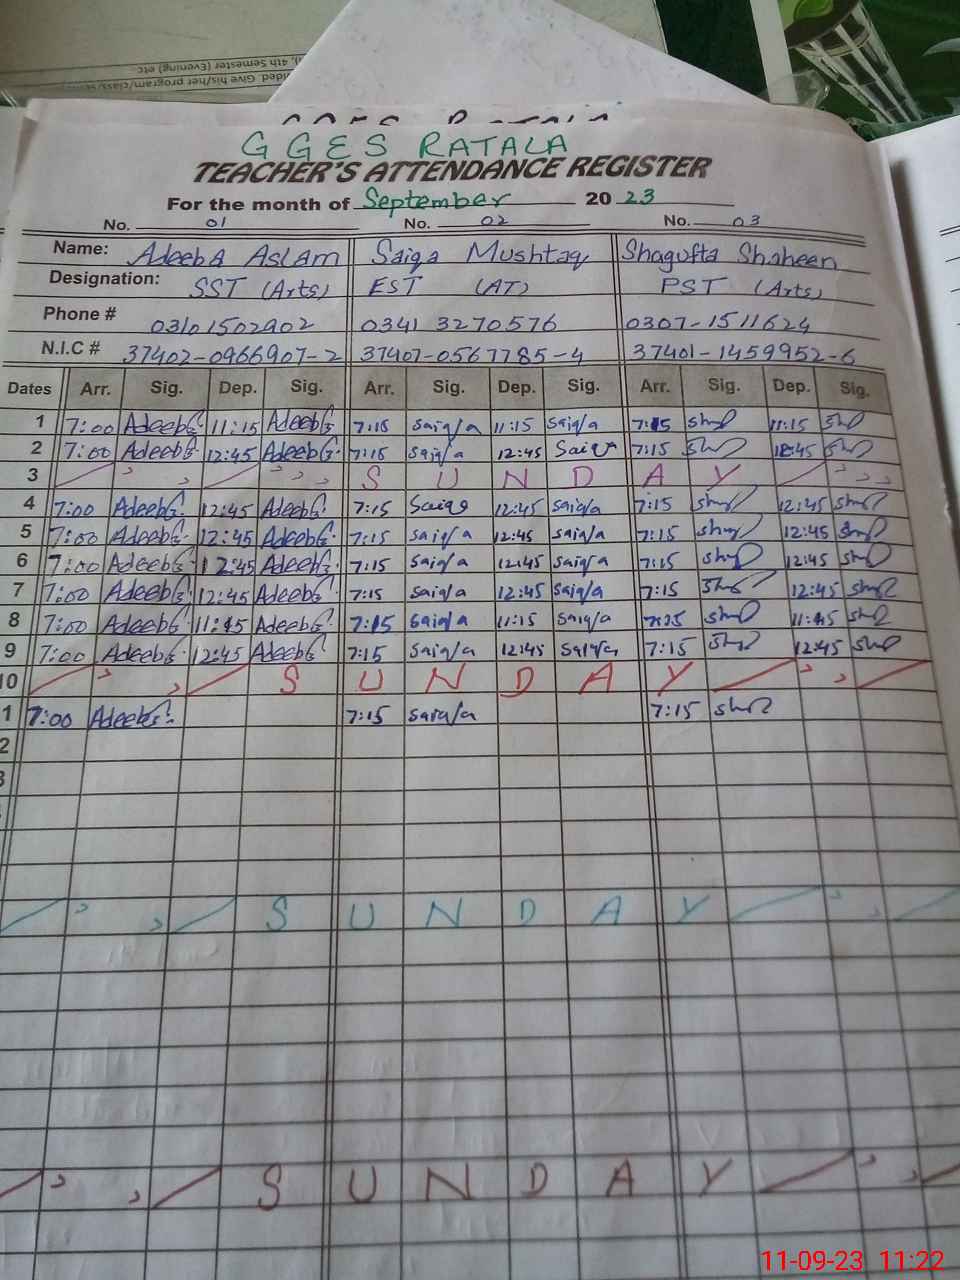 ded. Give his/her program/class/
4th Semester (Evening) etc
GGES RATALA
TEACHER'S ATTENDANCE REGISTER
For the month of September 2023
No. 01 No. 02 No. 03
Name: Adeeba Aslam Saiqa Mushtaq Shagufta Shaheen
Designation: SST (Arts) EST (AT) PST (Arts)
Phone # 03101502902 0341 3270576 0307-1511624
N.I.C # 37402-0966907-2 37407-0567785-4 37401-1459952-6
Dates Arr. Sig. Dep. Sig. Arr. Sig. Dep. Sig. Arr. Sig. Dep. Sig.
1 7:00 Adeeba 11:15 Adeeba 7:15 saiqa 11:15 saiqa 7:15 11:15
2 7:00 Adeeba 12:45 Adeeba 7:15 saiqa 12:45 Saiqa 7:15 12:45
3 SUNDAY
4 7:00 Adeeba 12:45 Adeeba 7:15 Saiqa 12:45 saiqa 7:15 12:45
5 7:00 Adeeba 12:45 Adeeba 7:15 saiqa 12:45 saiqa 7:15 12:45
6 7:00 Adeeba 12:45 Adeeba 7:15 saiqa 12:45 saiqa 7:15 12:45
7 7:00 Adeeba 12:45 Adeeba 7:15 saiqa 12:45 saiqa 7:15 12:45
8 7:00 Adeeba 11:15 Adeeba 7:15 saiqa 11:15 saiqa 7:15 11:15
9 7:00 Adeeba 12:45 Adeeba 7:15 saiqa 12:45 saiqa 7:15 12:45
10 SUNDAY
1 7:00 Adeeba 7:15 saiqa 7:15
2
3
SUNDAY
SUNDAY
11-09-23 11:22